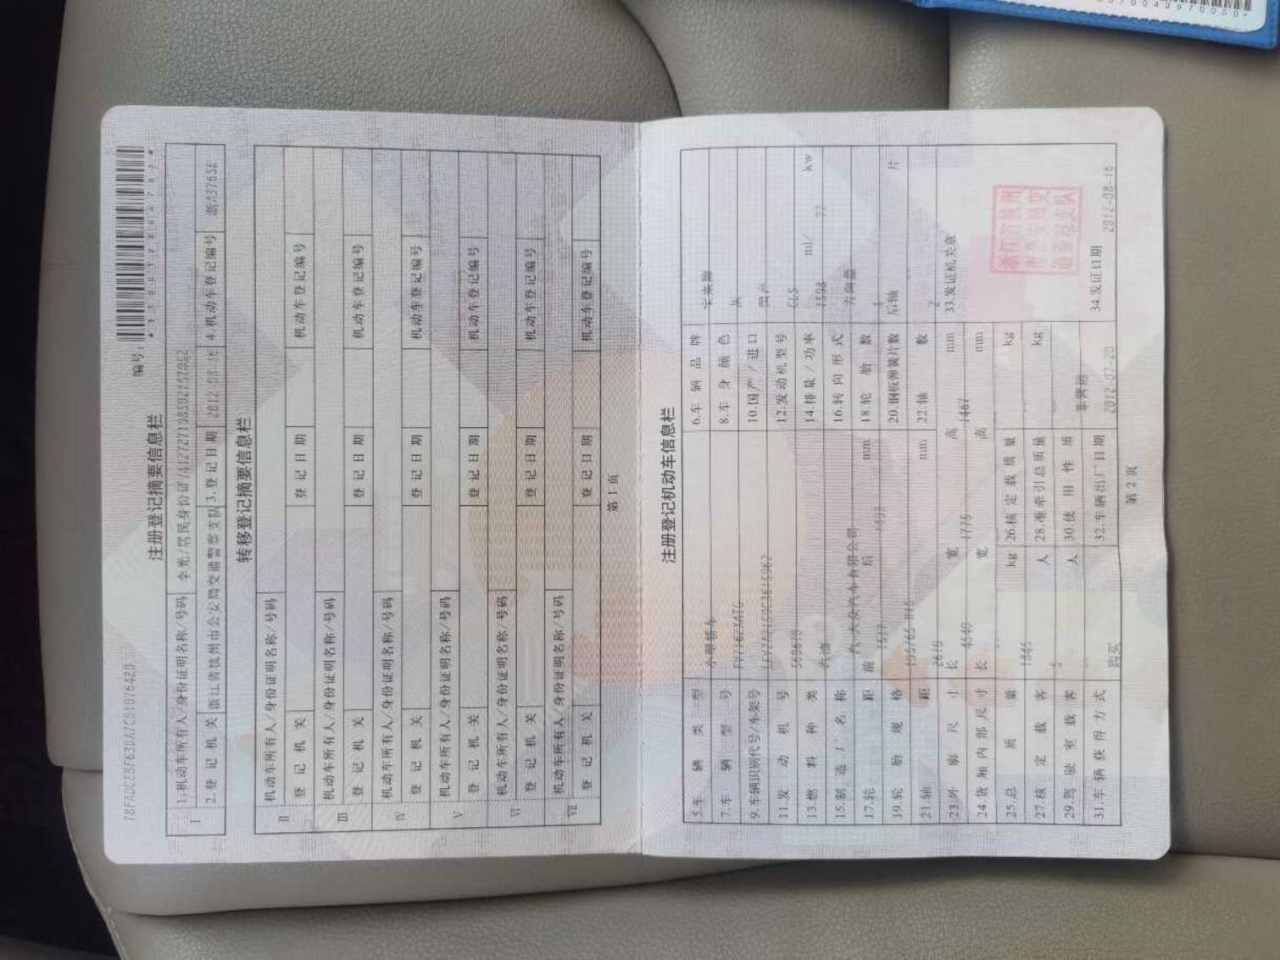 编号:
注册登记摘要信息栏
I
1.机动车所有人/身份证明名称/号码 李光/居民身份证
2.登记机关 浙江省杭州市公安局交通警察支队 3.登记日期 4.机动车登记编号
转移登记摘要信息栏
II 机动车所有人/身份证明名称/号码
登记机关 登记日期 机动车登记编号
III 机动车所有人/身份证明名称/号码
登记机关 登记日期 机动车登记编号
IV 机动车所有人/身份证明名称/号码
登记机关 登记日期 机动车登记编号
V 机动车所有人/身份证明名称/号码
登记机关 登记日期 机动车登记编号
VI 机动车所有人/身份证明名称/号码
登记机关 登记日期 机动车登记编号
VII 机动车所有人/身份证明名称/号码
登记机关 登记日期 机动车登记编号
第1页
注册登记机动车信息栏
5.车辆类型 小型轿车 6.车辆品牌 宝来牌
7.车辆型号 8.车身颜色 灰
9.车辆识别代号/车架号 10.国产/进口 国产
11.发动机号 12.发动机型号
13.燃料种类 汽油 14.排量/功率 1598 ml/ 77 kw
15.制造厂名称 一汽-大众汽车有限公司 16.转向形式 方向盘
17.轮距 前 后 mm 18.轮胎数 4
19.轮胎规格 195/65 R15 20.钢板弹簧片数 后轴 片
21.轴距 2610 mm 22.轴数 2
23.外廓尺寸 长 4540 宽 1775 高 1467 mm 33.发证机关章
24.货厢内部尺寸 长 宽 高 mm
25.总质量 kg 26.核定载质量 kg
27.核定载客 5 人 28.准牵引总质量 kg
29.驾驶室载客 人 30.使用性质 非营运
31.车辆获得方式 购买 32.车辆出厂日期 2012-07-20 34.发证日期 2012-08-16
第2页